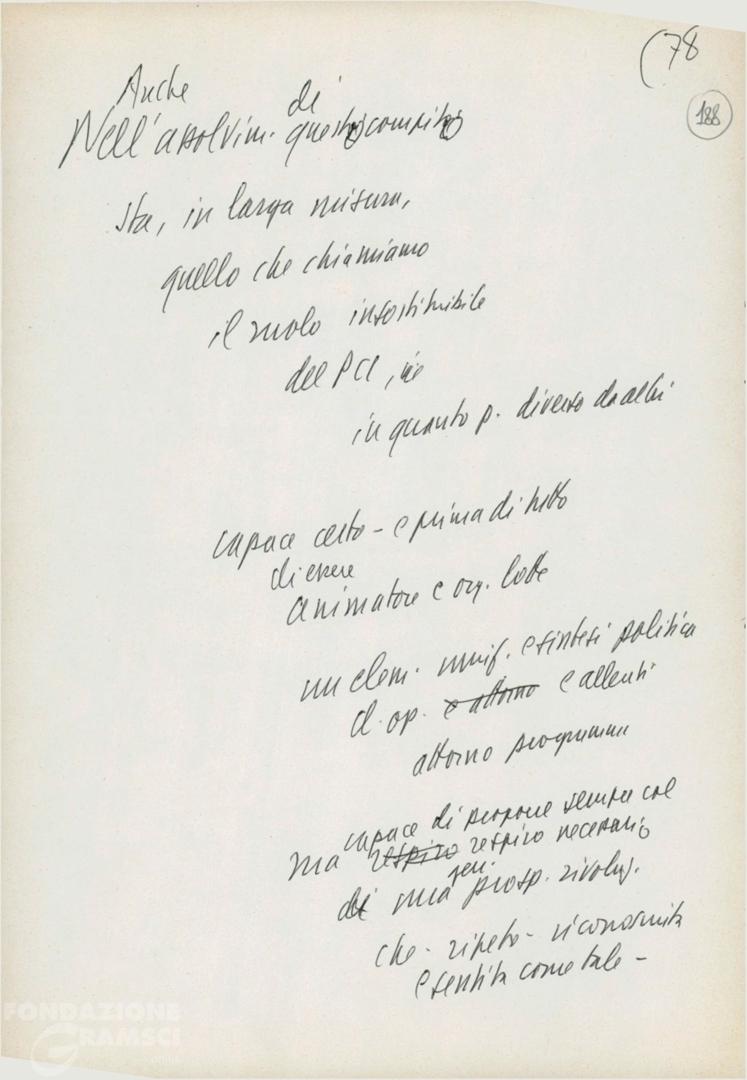 (78
188
Anche
Nell'assolvim. di questo compito
sta, in larga misura,
quello che chiamiamo
il ruolo insostituibile
del PCI, in
in quanto p. diverso da altri
capace certo - e prima di tutto
di essere
animatore e org. lotte
un elem. unif. e sintesi politica
cl. op. e attorno e alleati
attorno programmi
capace di proporre sempre col
ma respiro respiro necessario
di una prosp. rivoluz.
che - ripeto - riconosciuta
e sentita come tale -
FONDAZIONE
GRAMSCI